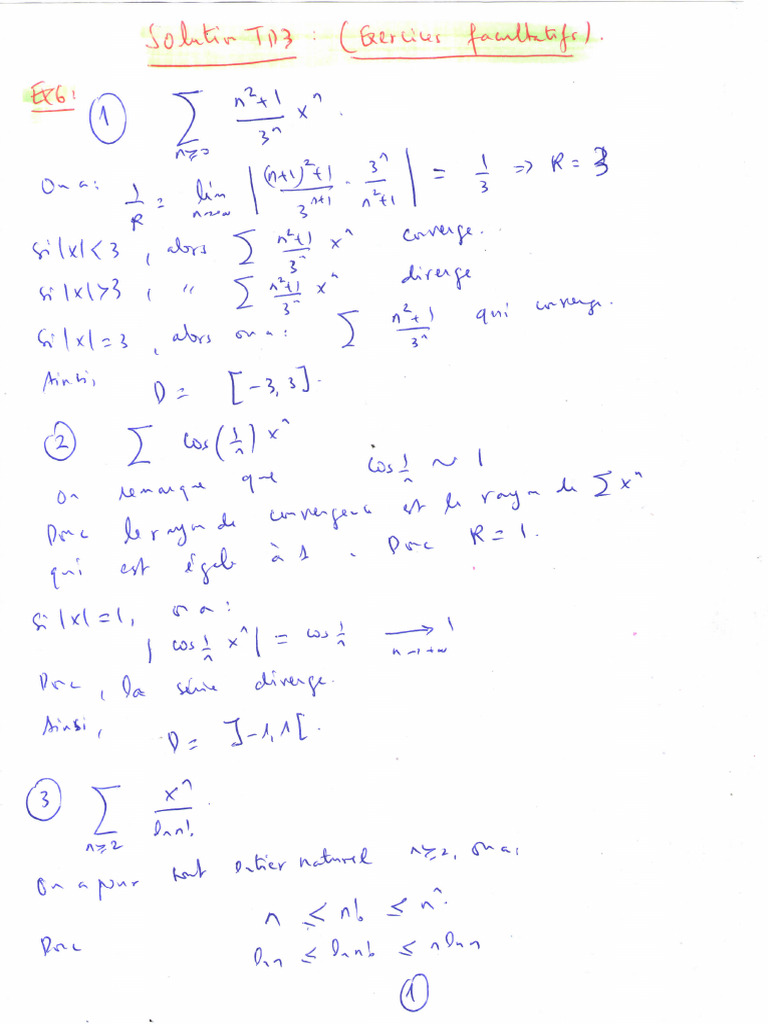 Solution TD3 : (Exercices facultatifs).
EX6: ① ∑_{n≥0} (n²+1)/3ⁿ xⁿ.
On a: 1/R = lim_{n→∞} |((n+1)²+1)/3ⁿ⁺¹ · 3ⁿ/(n²+1)| = 1/3 ⇒ R = 3
Si |x|<3, alors ∑ (n²+1)/3ⁿ xⁿ converge.
Si |x|>3, " ∑ (n²+1)/3ⁿ xⁿ diverge
Si |x|=3, alors on a: ∑ (n²+1)/3ⁿ qui converge.
Ainsi, D = [-3,3].
② ∑ cos(1/n) xⁿ
On remarque que cos 1/n ~ 1
Donc le rayon de convergence est le rayon de ∑ xⁿ
qui est égale à 1. Donc R = 1.
Si |x|=1, on a:
|cos 1/n xⁿ| = cos 1/n ⟶_{n→+∞} 1
Donc, la série diverge.
Ainsi, D = ]-1,1[.
③ ∑_{n≥2} xⁿ/ln n!
On a pour tout entier naturel n≥2, on a:
n ≤ n! ≤ nⁿ.
Donc ln n ≤ ln n! ≤ n ln n
①